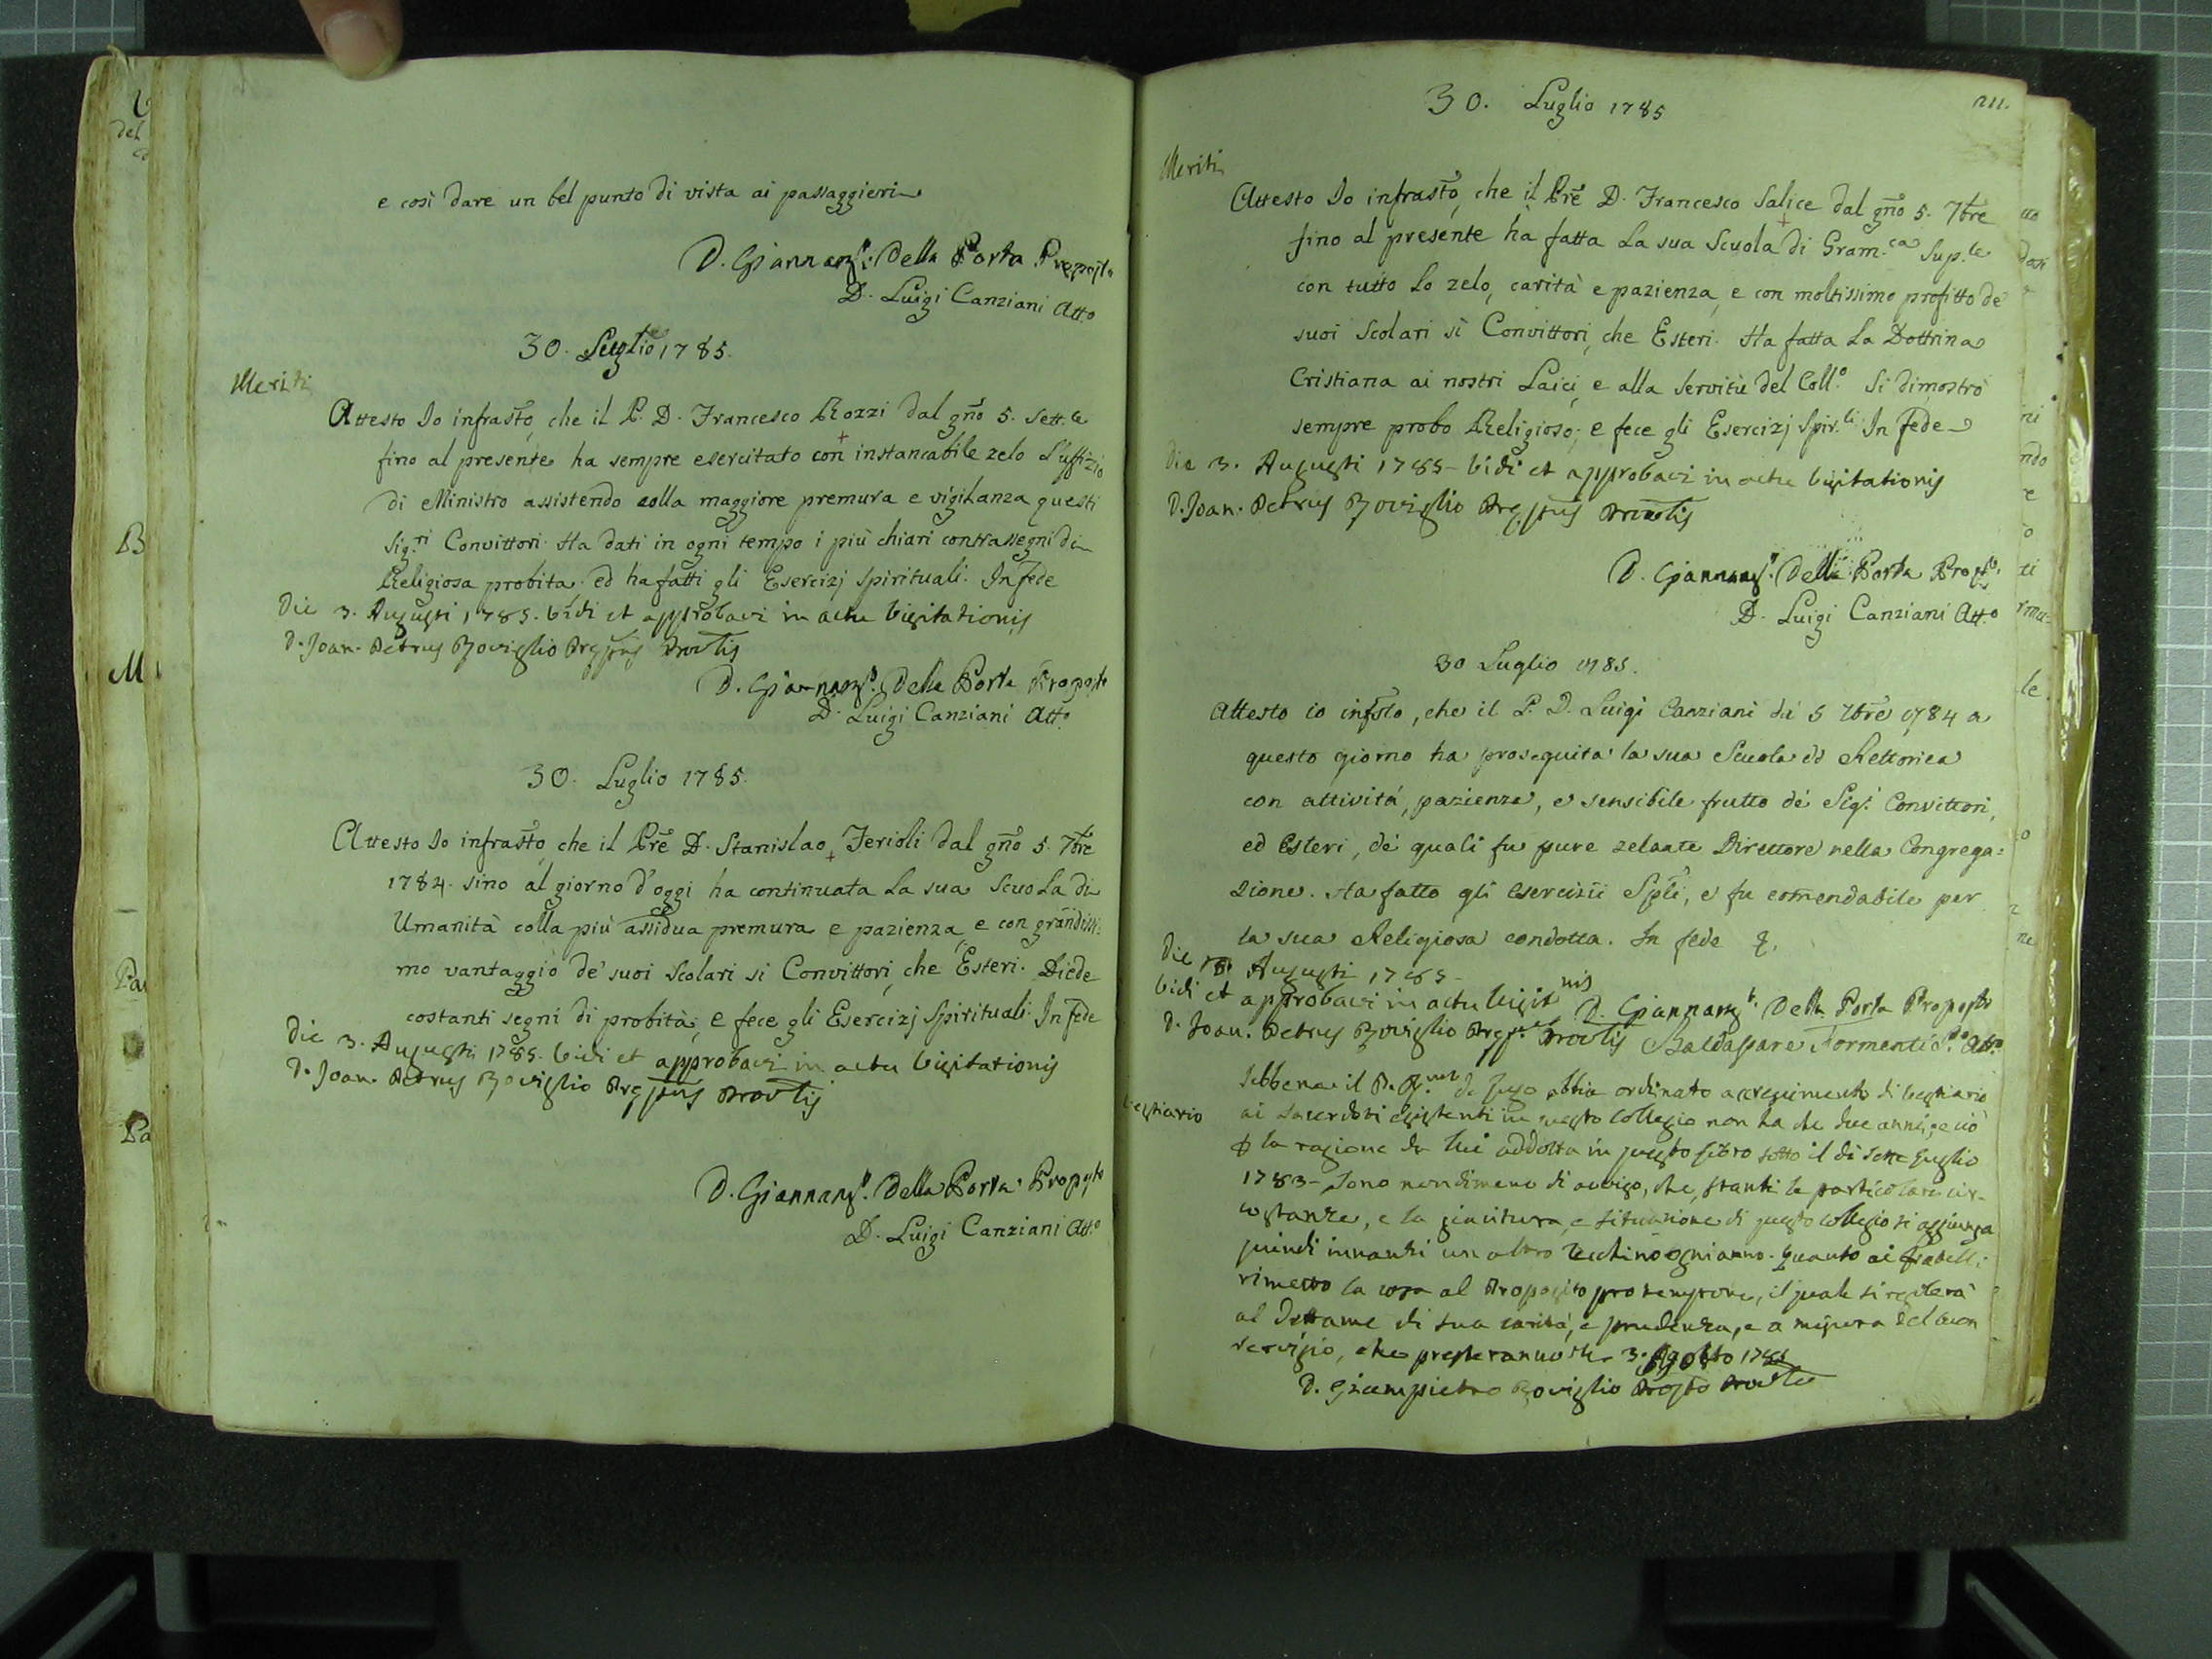 e così dare un bel punto di vista ai passaggieri
D. Giannang.º Della Porta Prepost.o
D. Luigi Canziani Att.o
30. Luglio 1785.
Meriti
Attesto Io infrasto, che il P. D. Francesco Rozzi dal gño 5. Sett.e
fino al presente ha sempre esercitato con instancabile zelo L'uffizio
di Ministro assistendo colla maggiore premura e vigilanza questi
Sig.ri Convittori. Ha dati in ogni tempo i più chiari contrassegni di
Religiosa probità, ed ha fatti gli Esercizj Spirituali. In fede
Die 3. Augusti 1785. Vidi et approbavi in actu Visitationis
D. Joan. Petrus Roviglio Prępus Provlis
D. Giannang.º Della Porta Propost.o
D. Luigi Canziani Att.o
30. Luglio 1785.
Attesto Io infrasto, che il Prē D. Stanislao Ferioli dal gño 5. 7bre
1784. sino al giorno d'oggi ha continuata La sua Scuola di
Umanità colla più assidua premura e pazienza, e con grandissi:
mo vantaggio de' suoi Scolari si Convittori, che Esteri. Diede
costanti segni di probità, e fece gli Esercizj Spirituali. In fede
Die 3. Augusti 1785. Vidi et approbavi in actu Visitationis
D. Joan. Petrus Roviglio Prępus Provlis
D. Giannang.º Della Porta Propost.o
D. Luigi Canziani Att.o
30. Luglio 1785
211.
Meriti
Attesto Io infrasto, che il Prē D. Francesco Salice dal gño 5. 7bre
fino al presente hà fatta La sua Scuola di Gram.ca Sup.le
con tutto Lo zelo, carità e pazienza, e con moltissimo profitto de'
suoi Scolari sì Convittori, che Esteri. Ha fatta La Dottrina
Cristiana ai nostri Laici, e alla Servitù del Coll.º Si dimostrò
sempre probo Religioso, e fece gli Esercizj Spir.li In fede
Die 3. Augusti 1785 - Vidi et approbavi in actu Visitationis
D. Joan. Petrus Roviglio Prępus Provlis
D. Giannang.º Della Porta Propst.o
D. Luigi Canziani Att.o
30 Luglio 1785.
Attesto io infsto, che il P. D. Luigi Canziani dai 5 7bre 1784 a
questo giorno ha proseguita la sua Scuola di Rettorica
con attività, pazienza, e sensibile frutto de' Sig.i Convittori,
ed Esteri, de' quali fu pure zelante Direttore nella Congrega:
zione. Ha fatto gli esercizii Splī, e fu com̄endabile per
la sua Religiosa condotta. In fede
Die 3. Augusti 1785 -
Vidi et approbavi in actu Visit.nis
D. Giannang.º Della Porta Propost.o
D. Joan. Petrus Roviglio Prępus Provlis
Baldassare Formenti Att.o
Vestiario
Sebbene il P. abbia ordinato accrescimento di vestiario
ai Sacerdoti esistenti in questo Collegio non ha che due anni, e ciò
la ragione da lui addotta in questo libro sotto il dì sette Luglio
1783 - Sono nondimeno di avviso, che, stanti le particolari cir-
costanze, e la giacitura, e situazione di questo Collegio si aggiunga
quindi innanzi un altro Zecchino ogni anno. Quanto ai fratelli
rimetto la cosa al Proposito pro tempore, il quale si regolerà
al Dettame di sua carità, e prudenza, e a misura del buon
servigio, che presteranno. 3. Agosto 1785
D. Giampietro Roviglio Prosto Provle